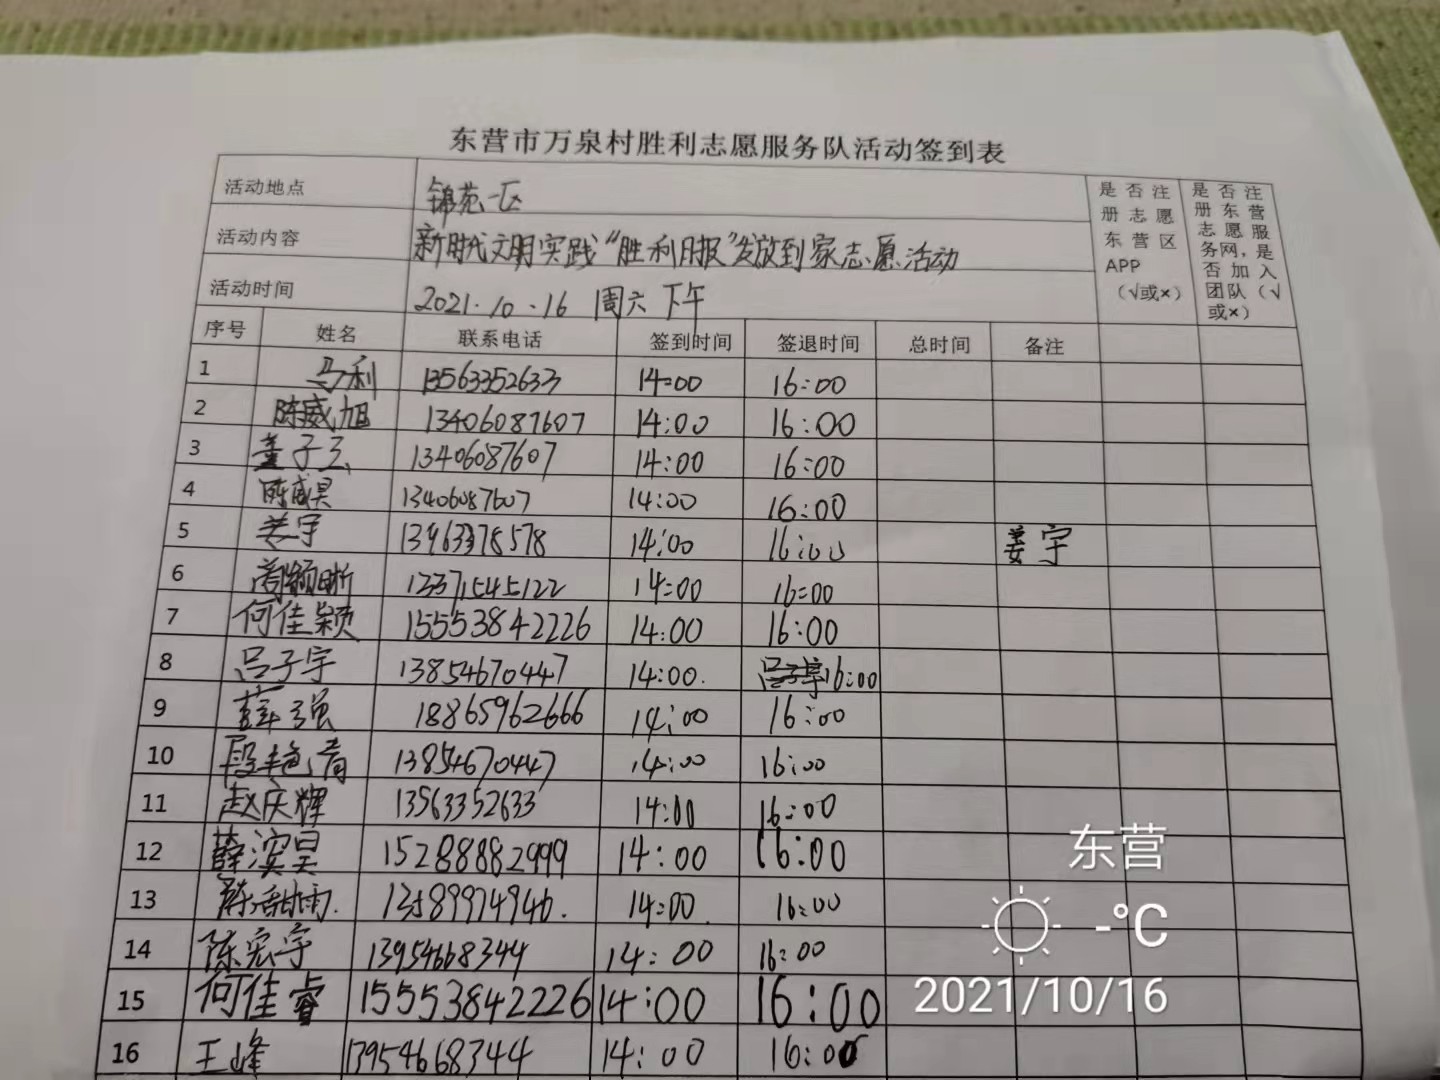 东营市万泉村胜利志愿服务队活动签到表
活动地点 锦苑一区
活动内容 新时代文明实践“胜利日报”发放到家志愿活动
活动时间 2021.10.16 周六下午
是否注册志愿东营区APP（√或×）
是否注册东营志愿服务网，是否加入团队（√或×）
序号 姓名 联系电话 签到时间 签退时间 总时间 备注
1 马利 13563352633 14:00 16:00
2 陈威旭 13406087607 14:00 16:00
3 董子 13406087607 14:00 16:00
4 陈威昊 13406087607 14:00 16:00
5 姜宇 13963378578 14:00 16:00 姜宇
6 13371545122 14:00 16:00
7 何佳颖 15553842226 14:00 16:00
8 吕子宇 13854670447 14:00. 16:00
9 薛强 18865962666 14:00 16:00
10 段艳青 13854670447 14:00 16:00
11 赵庆辉 13563352633 14:00 16:00
12 薛滨昊 15288882999 14:00 16:00
13 13589974946. 14:00. 16:00
14 陈宏宇 13954668344 14:00 16:00
15 何佳睿 15553842226 14:00 16:00
16 王峰 13954668344 14:00 16:00
东营
-°C
2021/10/16